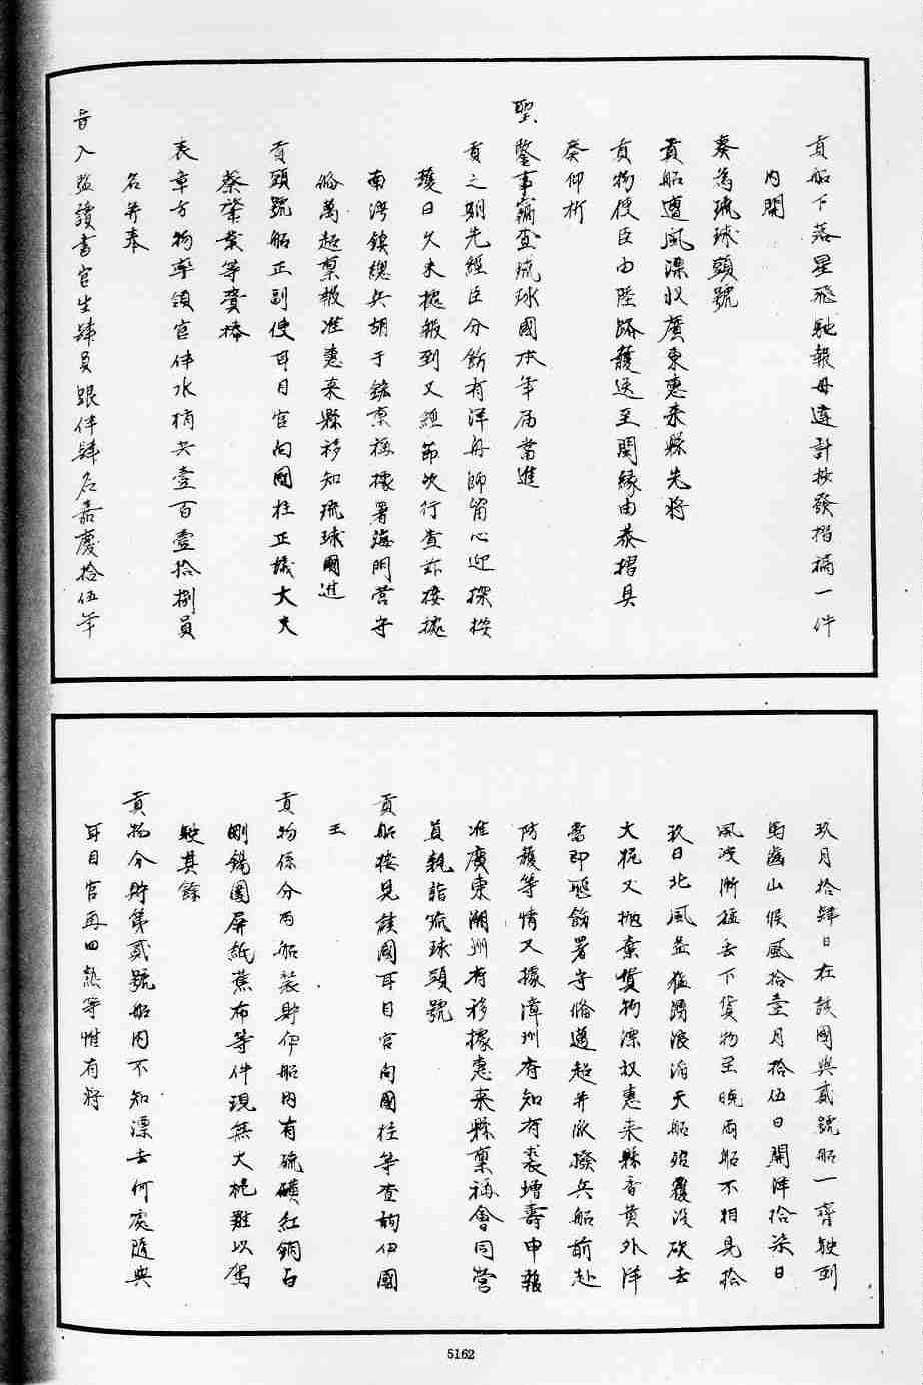 貢船下落星飛馳報毋違計抄發摺稿一件
內開
奏為琉球頭號
貢船遭風漂收廣東惠來縣先將
貢物使臣由陸路護送至閩緣由恭摺具
奏仰祈
聖鑒事竊查琉球國本年屆當進
貢之期先經臣分飭有洋舟師留心迎探按
護日久未據報到又經節次行查茲接據
南澳鎮總兵胡于鋐稟稱據署海門營守
備萬超稟報准惠來縣移知琉球國進
貢頭號船正副使耳目官向國柱正議大夫
蔡肇業等賫捧
表章方物率領官伴水梢共壹百壹拾捌員
名并奉
旨入監讀書官生肆員跟伴肆名嘉慶拾伍年
玖月拾肆日在該國與貳號船一齊駛到
馬齒山候風拾壹月拾伍日開洋拾柒日
風浪漸猛丟下貨物至晚兩船不相見拾
玖日北風益猛湧浪滔天船殆覆沒砍去
大桅又拋棄貨物漂收惠來縣香黄外洋
當即轉飭署守備遇超并派撥兵船前赴
防護等情又據漳州府知府裘增壽申報
准廣東潮州府移據惠來縣稟稱會同營
員親詣琉球頭號
貢船接見該國耳目官向國柱等查詢伊國
王
貢物係分兩船裝貯伊船內有硫磺紅銅白
剛錫圍屏紙蕉布等件現無大桅難以駕
駛其餘
貢物分貯第貳號船內不知漂去何處隨與
耳目官再四熟等惟有將
5162